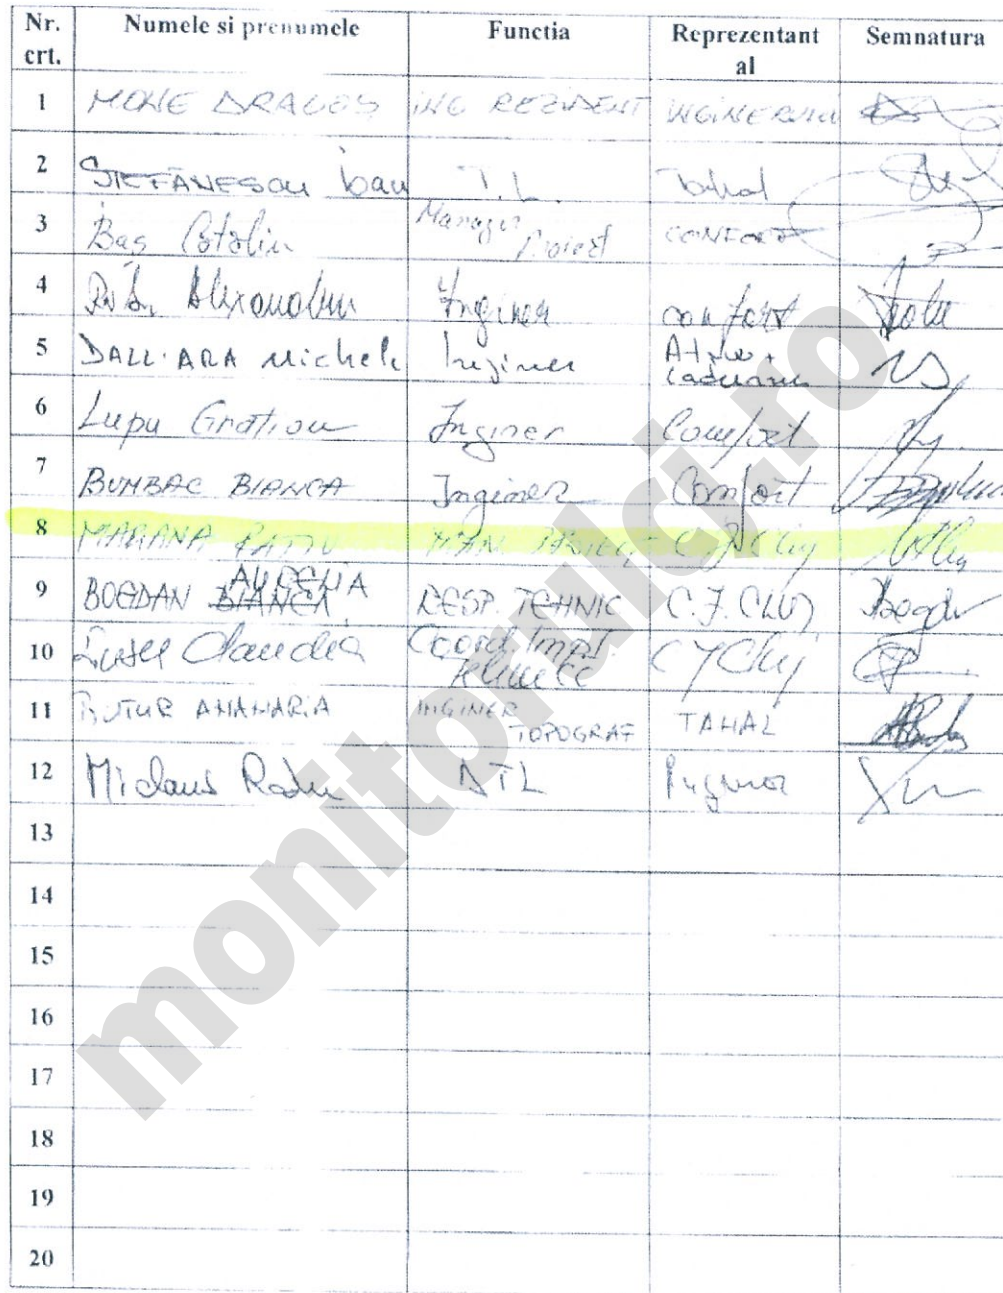 Nr. crt. Numele si prenumele Functia Reprezentant al Semnatura
1 MONE DRAGOS ING REZIDENT INGINERULUI
2 STEFĂNESCU Ioan T.L. Tahal
3 Bas Catalin Manager Proiect CONFORT
4 Alexandru Inginer confort
5 DALL'ARA Michele Inginer
6 Lupu Gratian Inginer Comfort
7 BUMBAC BIANCA Inginer Comfort
8 MARIANA RATIU MAN PROIECT CJ Cluj
9 BOGDAN BIANCA AURELIA RESP. TEHNIC C.J. CLUJ
10 Claudia Coord CJ Cluj
11 RUTUR ANAMARIA INGINER TOPOGRAF TAHAL
12 Miclaus Radu DTL Inginer
13
14
15
16
17
18
19
20
monitorulcj.ro